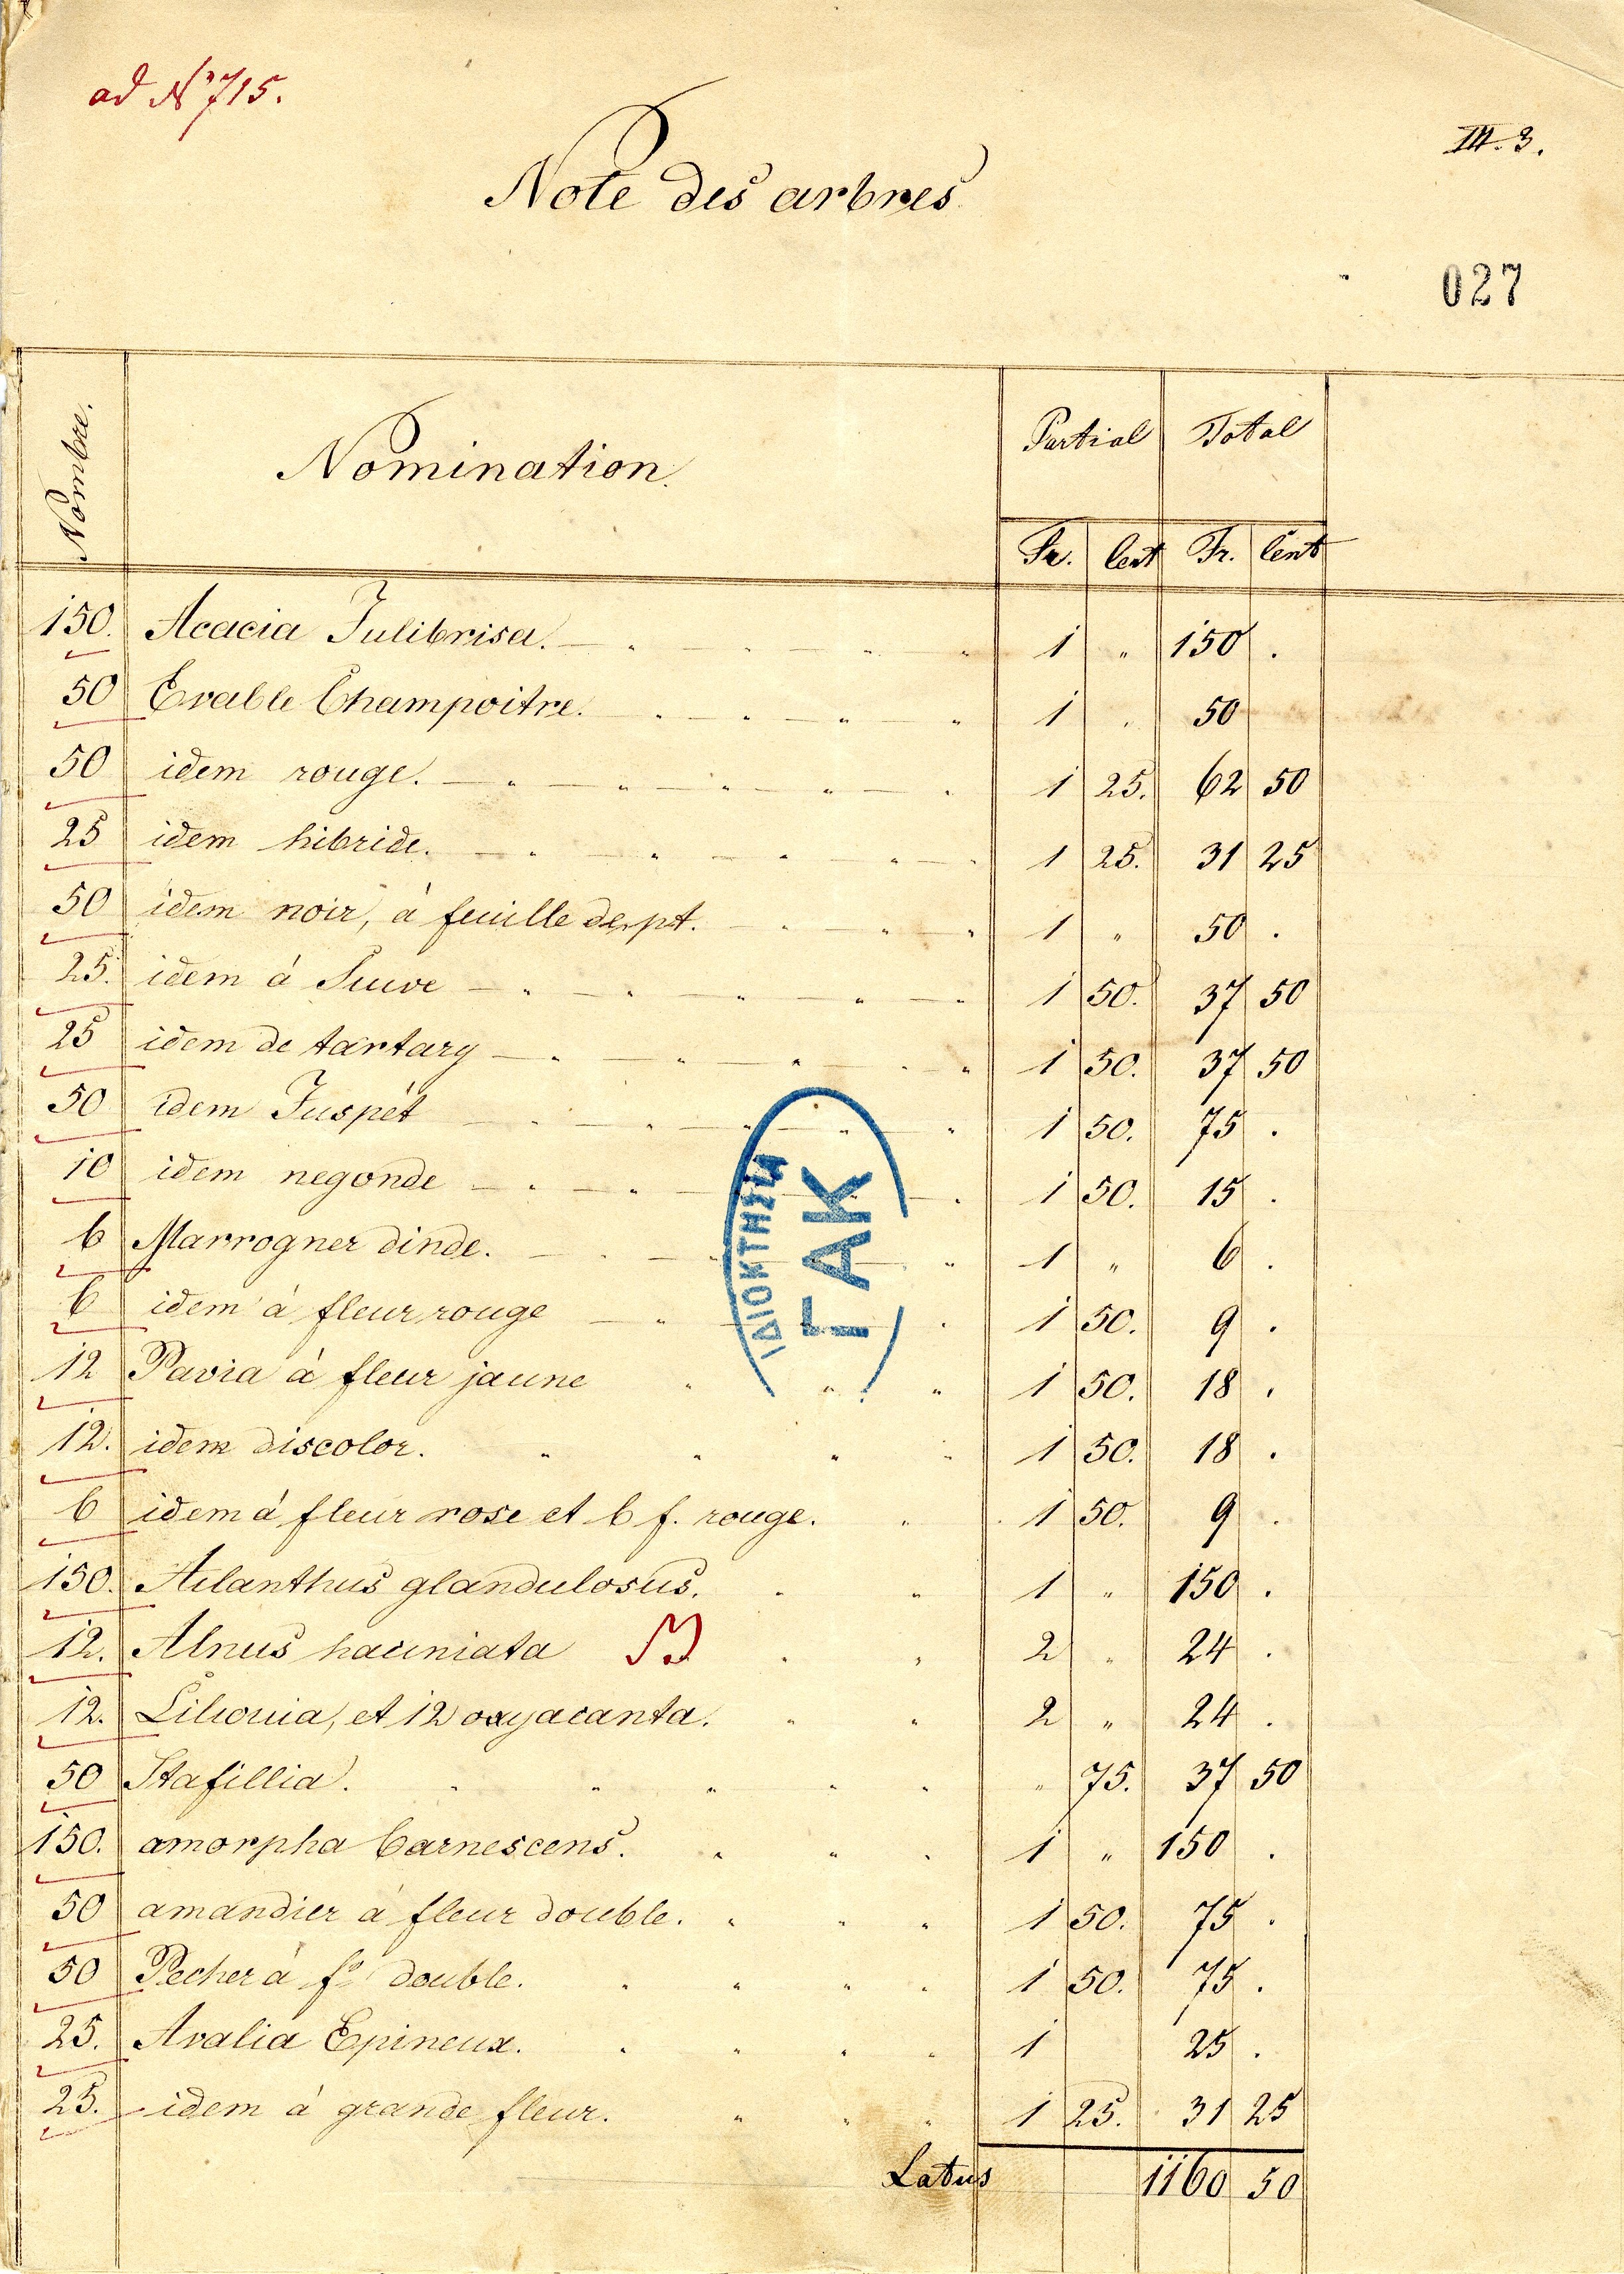 ad No 715.
III. 3.
Note des arbres
027
Nombre. Nomination. Partial Total
Fr. Cent Fr. Cent
150. Acacia Julibrisa. 1 " 150 .
50 Erable Champoitre. 1 . 50
50 idem rouge. 1 25. 62 50
25 idem hibride. 1 25. 31 25
50 idem noir, à feuille de pt. 1 " 50 .
25. idem à Sucve 1 50. 37 50
25 idem de tartary 1 50. 37 50
50 idem Juspét 1 50. 75 .
10 idem negonde 1 50. 15 .
6 Marrogner dinde. 1 " 6 .
6 idem à fleur rouge 1 50. 9 .
12 Pavia à fleur jaune 1 50. 18 .
12. idem discolor. 1 50. 18 .
6 idem à fleur rose et 6 f. rouge. 1 50. 9 .
150. Ailanthus glandulosus. 1 " 150 .
12. Alnus haciniata 2 " 24 .
12. et 12 oxyacanta. 2 " 24 .
50 Stafillia. " 75. 37 50
150. amorpha Carnescens. 1 " 150 .
50 amandier à fleur double. 1 50. 75 .
50 Pecher à fr double. 1 50. 75 .
25. Aralia Epineux. 1 25 .
25. idem à grande fleur. 1 25. 31 25
Latus 1160 50
ΙΔΙΟΚΤΗΣΙΑ
ΓΑΚ